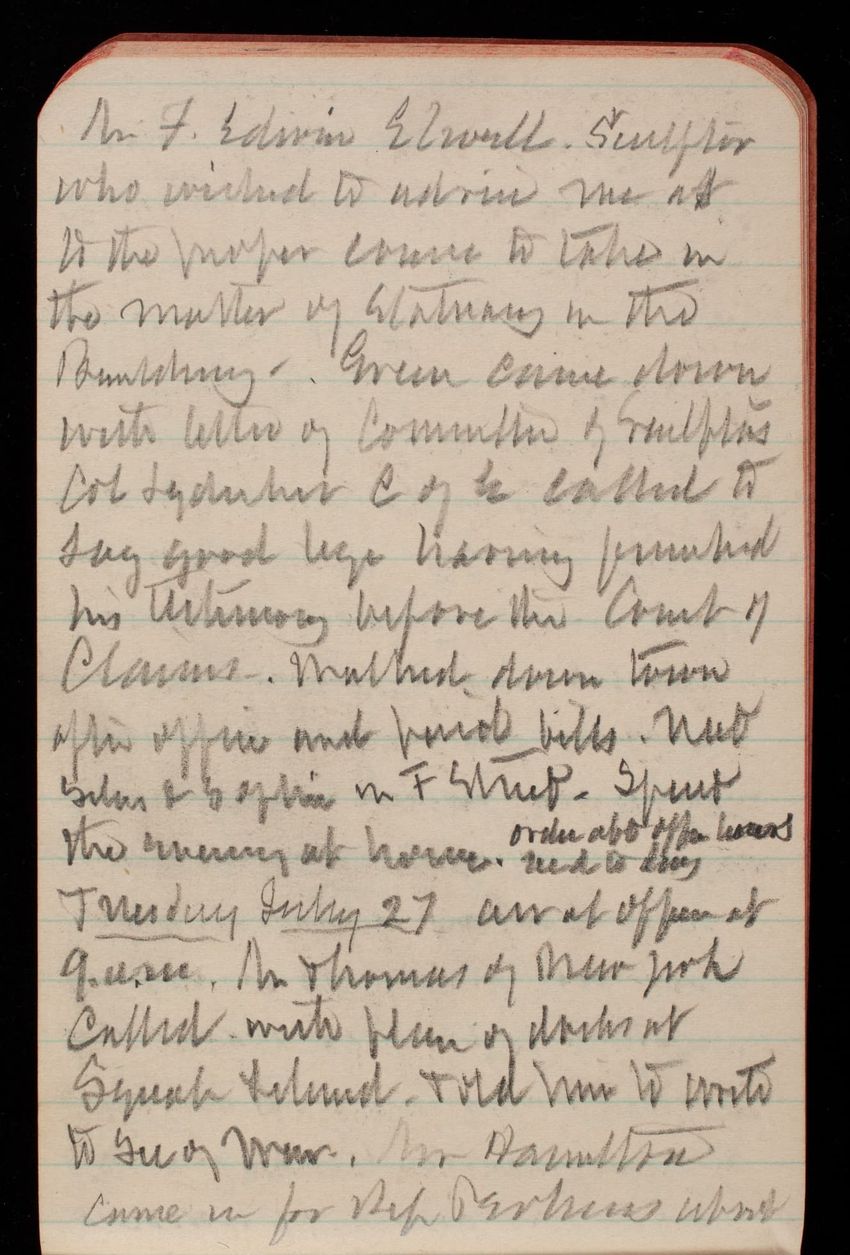 Mr F. Edwin Elwell. Sculptor
who wished to advise me as
to the proper course to take in
the matter of Statuary in the
Building. Green came down
with letter of Committee of Sculptors
Col C of E called to
say good bye having finished
his testimony before the Court of
Claims. Walked down town
after office and paid bills. Met
in F Street. Spent
the evening at home. order abt office hours
recd to day
Tuesday July 27 arr at office at
9 a.m. Mr Thomas of New York
Called with plan of docks at
Island. Told him to write
to Sec of War. Mr Hamilton
came in for Rep Perkins about